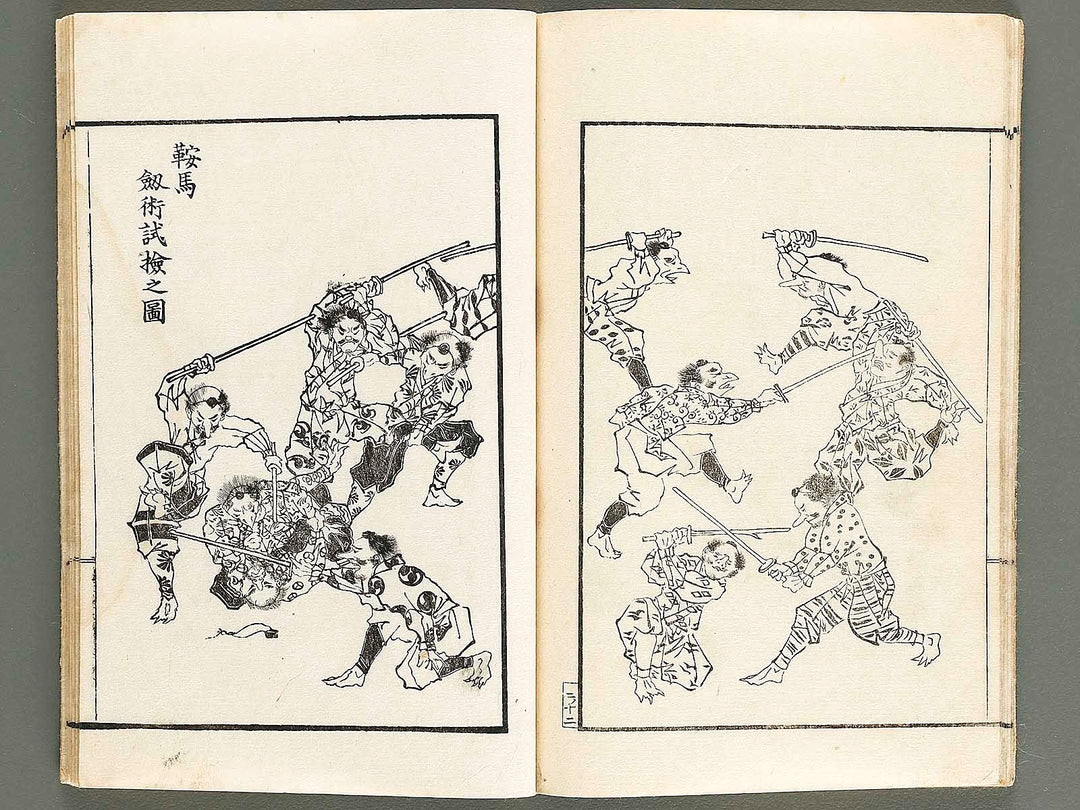 鞍馬
劔術試撿之圖
ラ十二